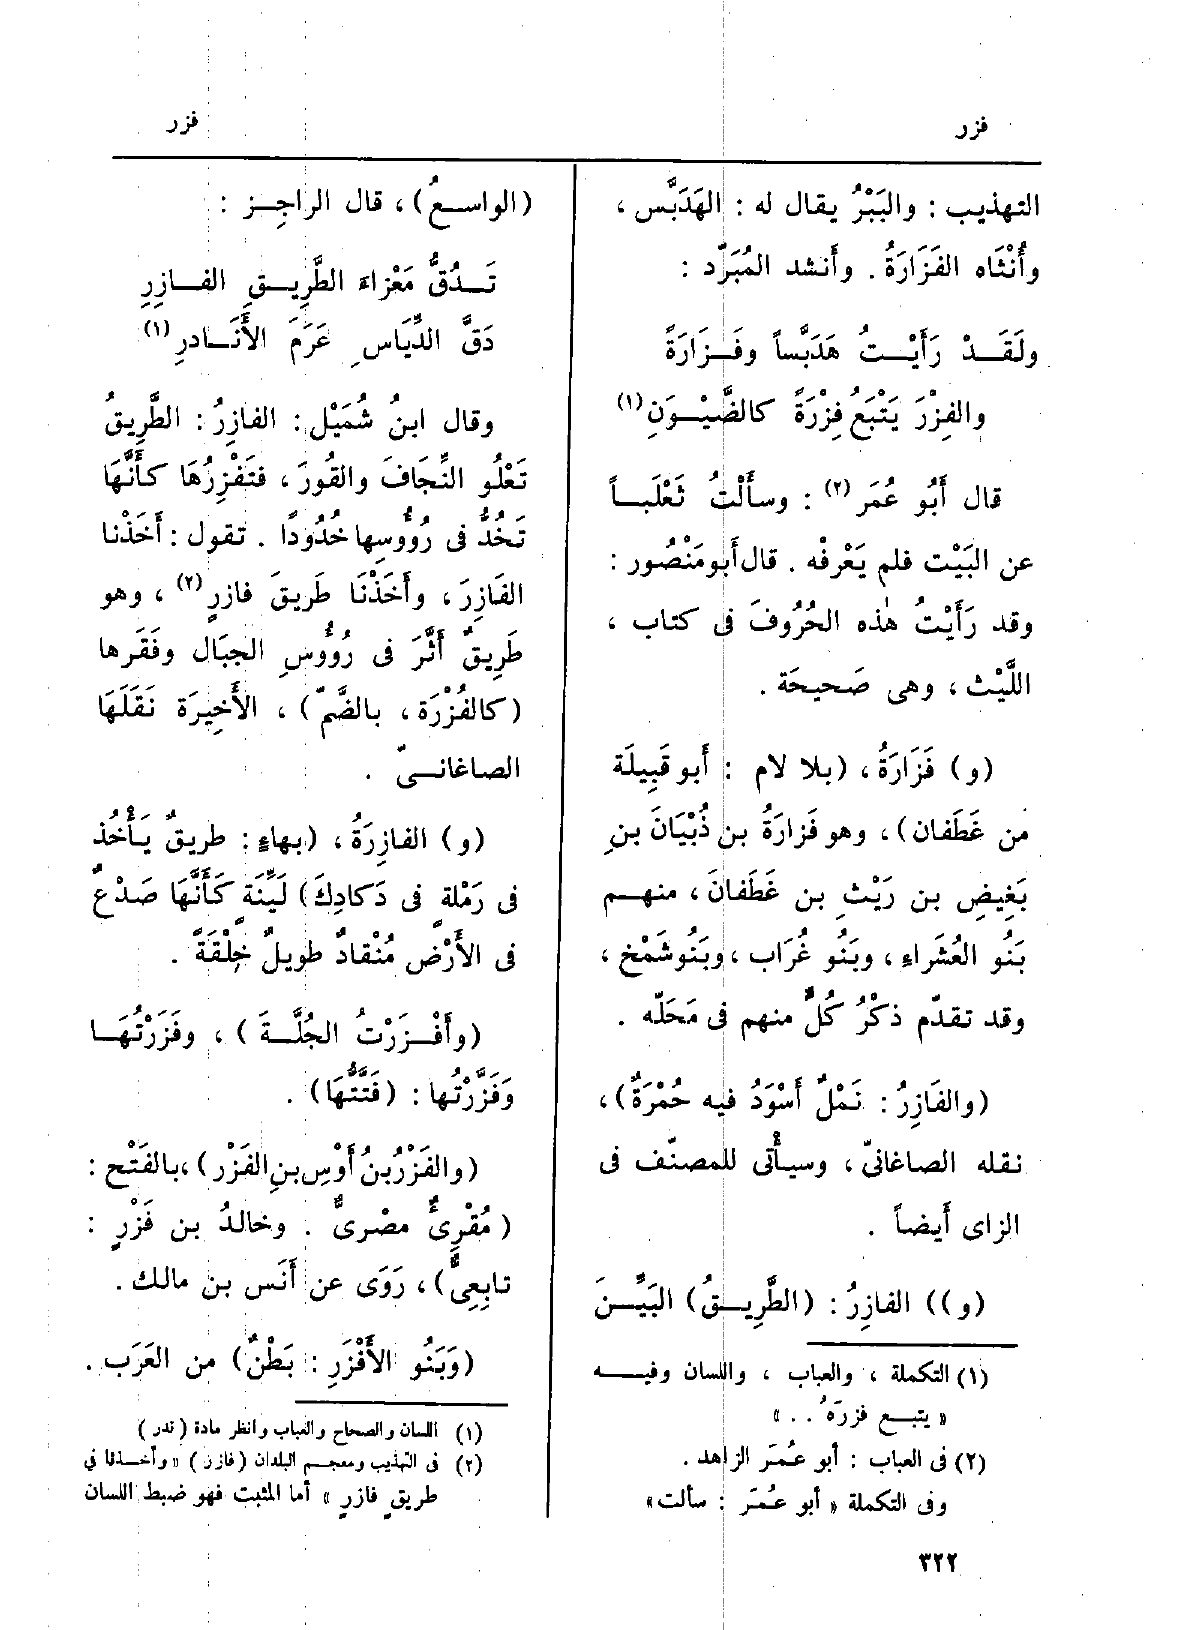 فزر
فزر
التهذيب : والبَبْرُ يقال له : الهَدَبَّس ،
وأُنْثَاه الفَزَارَةُ . وأَنشد المُبَرّد :
ولَقَدْ رَأَيْتُ هَدَبَّساً وفَزَارَةً
والفِزْرَ يَتْبَعُ فِزْرَةً كالضَّيْوَنِ (١)
قال أَبُو عُمَر (٢) : وسأَلْتُ ثَعْلَباً
عن البَيْت فلم يَعْرِفْه . قال أَبو مَنْصُور :
وقد رَأَيْتُ هٰذه الحُرُوفَ فى كتاب ،
اللَّيْث ، وهى صَحيحَة .
(و) فَزَارَةُ ، (بلا لام : أَبو قَبِيلَة
من غَطَفان) ، وهو فَزارَةُ بن ذُبْيَانَ بنِ
بَغِيضِ بن رَيْثِ بن غَطَفانَ ، منهم
بَنُو العُشَراءِ ، وبَنُو غُرَاب ، وبَنُو شَمْخ ،
وقد تقدّم ذكْرُ كُلٍّ منهم فى مَحَلّه .
(والفَازِرُ : نَمْلٌ أَسْوَدُ فيه حُمْرَةٌ) ،
نقله الصاغانىّ ، وسيأْتى للمصنّف فى
الزاى أَيضاً .
(و)) الفازِرُ : (الطَّرِيقُ) البَيِّنُ
(١) التكملة ، والعباب ، واللسان وفيه
« يتبع فزره . . »
(٢) فى العباب : أبو عُمَر الزاهد .
وفى التكملة « أبو عُمَر : سألت»
(الواسعُ) ، قال الراجِز :
تَدُقُّ مَعْزاءَ الطَّرِيقِ الفازِرِ
دَقَّ الدِّيَاسِ عَرَمَ الأَنَادرِ (١)
وقال ابنُ شُمَيْل : الفازِرُ : الطَّرِيقُ
تَعْلُو النِّجَافَ والقُورَ ، فتَفْزِرُهَا كأَنَّهَا
تَخُدُّ فى رُؤُوسِها خُدُودًا . تقول : أَخَذْنا
الفَازِرَ ، وأَخَذْنَا طَرِيقَ فازرٍ (٢) ، وهو
طَرِيقٌ أَثَّرَ فى رُؤُوسِ الجبَال وفَقَرها
(كالفُزْرَة ، بالضَّمّ) ، الأَخِيرَة نَقَلَهَا
الصاغانىّ .
(و) الفازِرَةُ ، (بهاءٍ : طريقٌ يَأْخُذ
فى رَمْلة فى دَكادِكَ) لَيِّنَةٍ كَأَنَّهَا صَدْعٌ
فى الأَرْضِ مُنْقادٌ طويلٌ خِلْقَةً .
(وأَفْزَرْتُ الجُلَّةَ ) ، وفَزَرْتُهَا
وَفَزَّرْتُها : (فَتَتُّهَا) .
(والفَزْرُ بنُ أَوْسِ بنِ الفَزْر) ، بالفَتْح :
( مُقْرِئٌ مصْرىٌّ . وخالدُ بن فَزْرٍ :
تابِعِىٌّ) ، رَوَى عن أَنَس بن مالك .
(وَبَنُو الأَفْزَرِ : بَطْنٌ) من العَرَب .
(١) اللسان والصحاح والعباب وانظر مادة ( ندر )
(٢) فى التهذيب ومعجم البلدان (فازر) «وأخذنا فى
طريقِ فازرٍ » أما المثبت فهو ضبط اللسان
٣٢٢